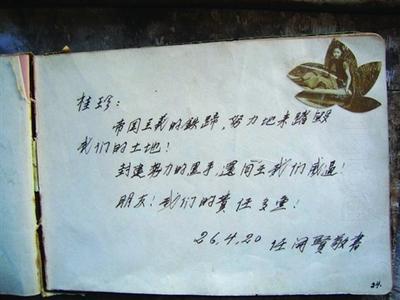 桂珍：
帝国主義的鉄蹄，努力地来踏毀
我们的土地！
封建势力的黑手，還向至我们威逼！
朋友！我们的責任多重！
26.4.20 任開賢敬書
24.